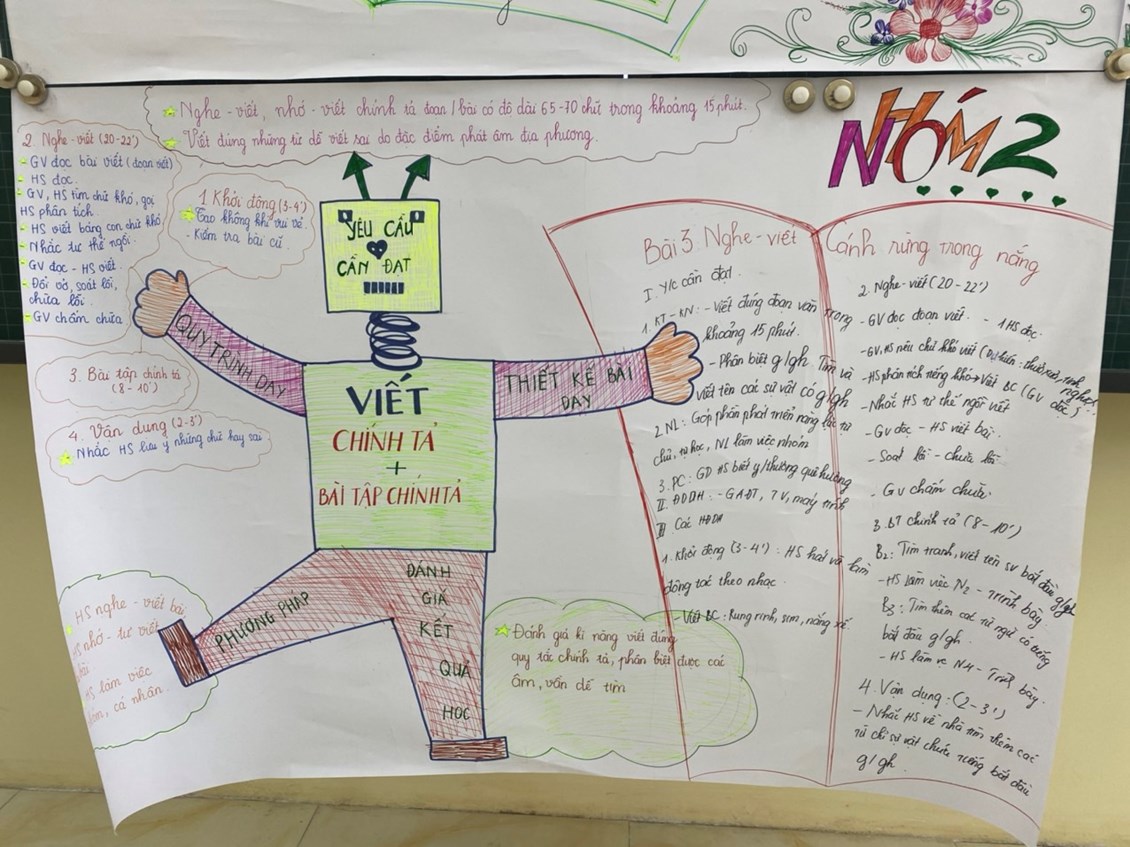 NHÓM 2
- Nghe - viết, nhớ - viết chính tả đoạn / bài có độ dài 65-70 chữ trong khoảng 15 phút.
- Viết đúng những từ dễ viết sai do đặc điểm phát âm địa phương.
YÊU CẦU
CẦN ĐẠT
QUY TRÌNH DẠY
1 Khởi động (3-4')
- Tạo không khí vui vẻ
- Kiểm tra bài cũ.
2. Nghe - viết (20-22')
- GV đọc bài viết (đoạn viết)
- HS đọc.
- GV, HS tìm chữ khó, gọi
HS phân tích.
- HS viết bảng con chữ khó
- Nhắc tư thế ngồi.
- GV đọc - HS viết.
- Đổi vở, soát lỗi,
chữa lỗi.
- GV chấm chữa
3. Bài tập chính tả
(8-10')
4. Vận dụng (2-3')
Nhắc HS lưu ý những chữ hay sai
VIẾT
CHÍNH TẢ
+
BÀI TẬP CHÍNH TẢ
PHƯƠNG PHÁP
HS nghe - viết bài
HS nhớ - tự viết
bài
HS làm việc
nhóm, cá nhân.
ĐÁNH
GIÁ
KẾT
QUẢ
HỌC
- Đánh giá kĩ năng viết đúng
quy tắc chính tả, phân biệt được các
âm, vần dễ tìm
THIẾT KẾ BÀI
DẠY
Bài 3. Nghe - viết Cánh rừng trong nắng
I. Y/c cần đạt.
1. KT - KN: - Viết đúng đoạn văn trong
khoảng 15 phút.
- Phân biệt g/gh. Tìm và
viết tên các sự vật có g/gh
2. NL: Góp phần phát triển năng lực tự
chủ, tự học, NL làm việc nhóm
3. PC: GD HS biết y/thương quê hương
II. ĐDDH: - GAĐT, TV, máy tính
III Các HĐDH
1. Khởi động (3-4'): HS hát và làm
động tác theo nhạc.
Viết BC: Rung rinh, sim, nắng
2. Nghe - viết (20-22')
- GV đọc đoạn viết. - 1 HS đọc.
- GV, HS nêu chữ khó viết
- HS phân tích tiếng khó → Viết BC (GV đọc)
- Nhắc HS tư thế ngồi viết
- GV đọc - HS viết bài.
- Soát lỗi - chữa lỗi.
- GV chấm chữa.
3. BT chính tả (8-10')
B2: Tìm tranh, viết tên sv bắt đầu g/gh
- HS làm việc N2 - Trình bày
B3: Tìm thêm các từ ngữ có tiếng
bắt đầu g/gh.
- HS làm vc N4 - Trình bày.
4. Vận dụng: (2-3')
- Nhắc HS về nhà tìm thêm các
từ chỉ sự vật chứa tiếng bắt đầu
g/gh.